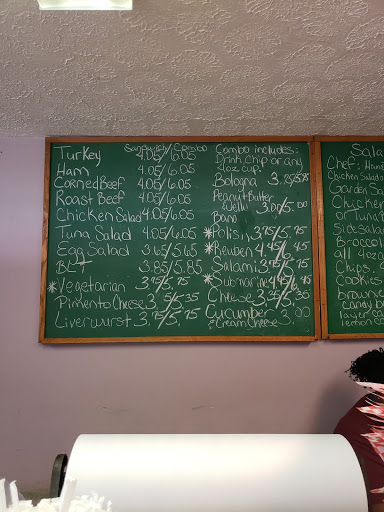 Sandwich/Combo
Turkey 4.05/6.05
Ham 4.05/6.05
Corned Beef 4.05/6.05
Roast Beef 4.05/6.05
Chicken Salad 4.05/6.05
Tuna Salad 4.05/6.05
Egg Salad 3.65/5.65
BLT 3.85/5.85
*Vegetarian 3.75/5.75
Pimento Cheese 3.35/5.35
Liverwurst 3.75/5.75
Combo includes:
Drink, Chip or any
4oz cup.
Bologna 3.75/5.75
Peanut Butter
& Jelly 3.00/5.00
*Polish 3.75/5.75
*Reuben 4.45/6.45
Salami 3.75/5.75
*Submarine 4.45/6.45
Cheese 3.35/5.35
Cucumber 3.00
& Cream Cheese
Sala
Chef: Ham
Chicken Salad
Garden Sa
Chicken
or Tuna
Side Sala
Broccol
all 4oz
Chips.
Cookies
browni
candy b
layer ca
lemon c